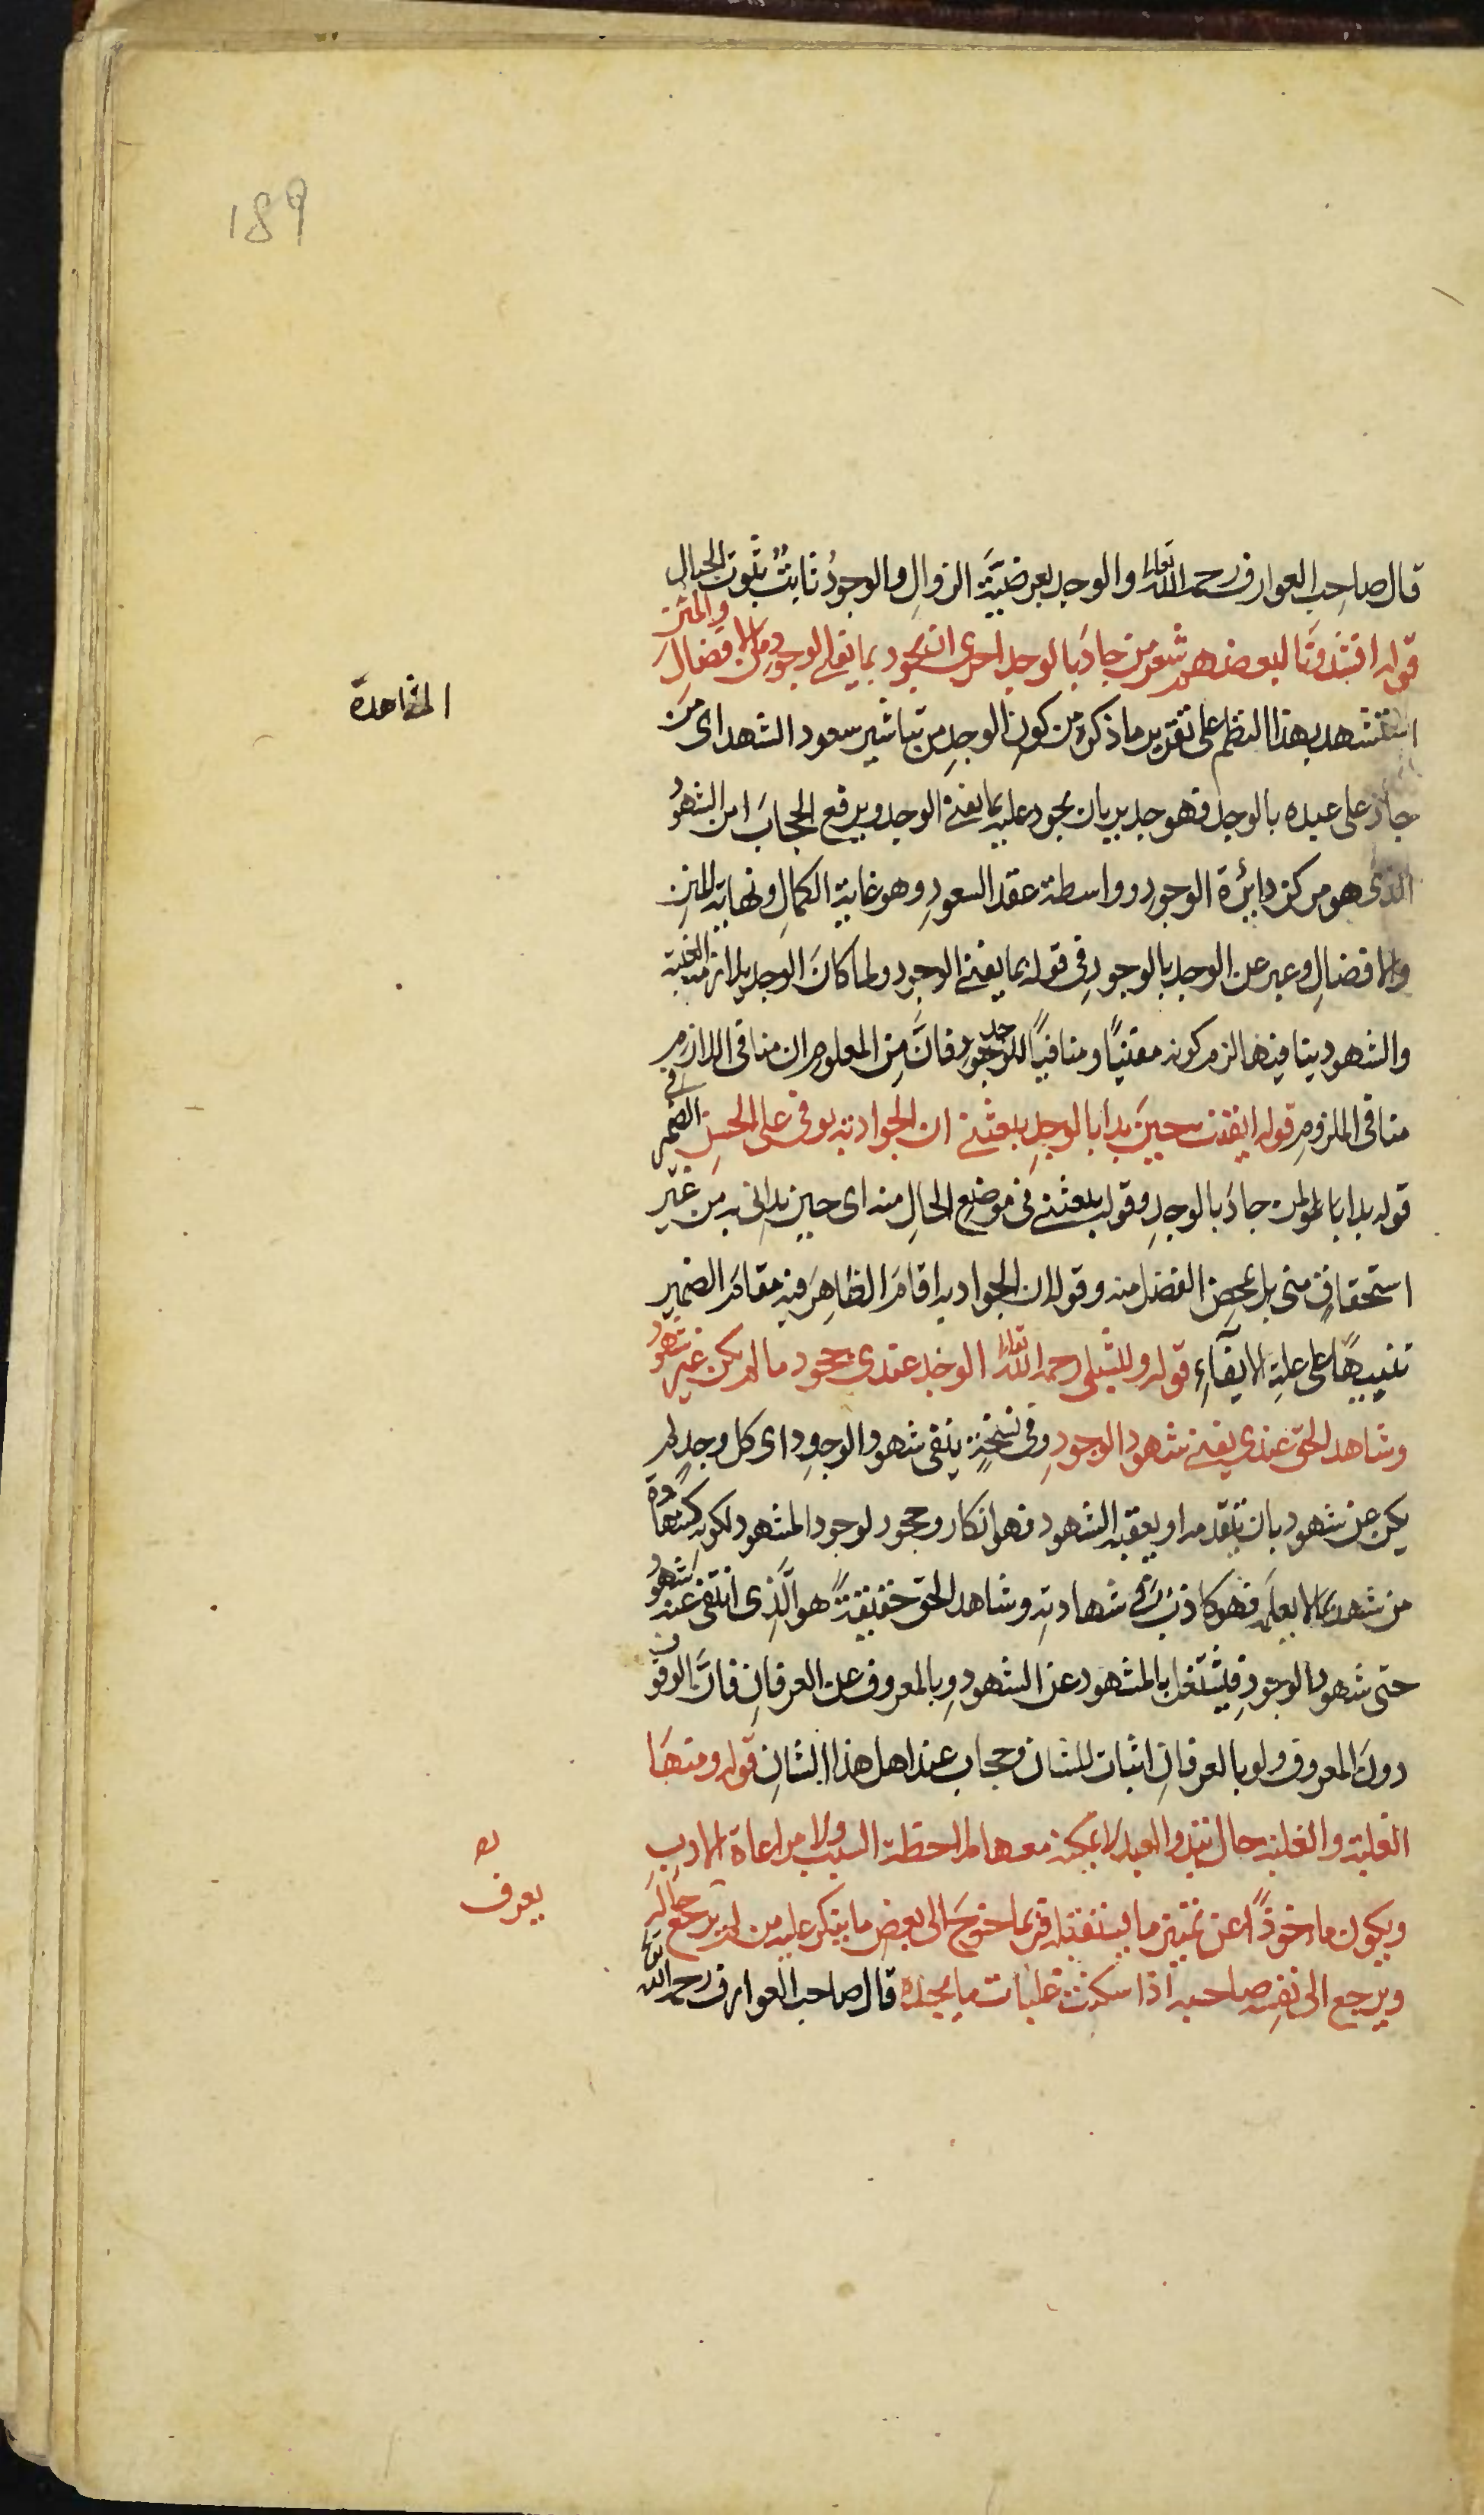 189
قال صاحب العوارف رحمه الله تعالى والوجد بعرضيّة الزوال والوجودُ ثابتٌ بثبوت الجبال
قوله انشدونا لبعضهم شعر من جادَ بالوجد احرى ان يجود بما يفني الوجود من الافضال والمنن
استشهد بهذا النظم على تقرير ما ذكره من كون الوجدِ من تباشير سعود الشهد اى من
المشاهدة
جاد على عبده بالوجد فهو جدير بان يجود عليه بما يفنى الوجد ويرفع الحجابَ من الشهود
الذى هو مركز دايرة الوجود وواسطة عقد السعودِ وهو غاية الكمالِ ونهاية المننِ
والافضالِ وعبر عن الوجد بالوجودِ فى قوله بما يفنى الوجود ولما كانَ الوجد يلازمه الغيبة
والشهود ينافيها لزم كونه مفنيًا ومنافيًا للوجود جد فانَّ مِن المعلوم ان منافى اللازم
منافى الملزومِ قوله ايقنت حين بدا بالوجدِ يبعثنى ان الجواد به يوفى على الحسنِ الضمير فى
قوله بدا بالوجد لمن جادَ بالوجدِ وقوله يبعثنى فى موضع الحالِ منه اى حين بدانى به من غير
استحقاقٍ منى بل بمحض الفضل منه وقوله ان الجواد به اقامَ الظاهِرَ فيه مقامَ الضمير
تنبيهًا على علة الايفآءِ قوله وللشبلى رحمه الله تعالى الوجد عندى جحود ما لم يكن عن شهود
وشاهد الحق عندى يفنى شهود الوجودِ وفى نسخةٍ ينفى شهود الوجودِ اى كل وجدٍ لم
يكن عن شهود بان يتقدمه او يعقبه الشهود فهو انكار وجحود لوجود المشهود لكونه كشهادة
من شهد بما لا يعلم فهو كاذبٌ فى شهادته وشاهد الحق حقيقةً هو الّذى انتفى عنه شهود
حتى شهود الوجودِ فيشتغل بالمشهود عن الشهودِ وبالمعروف عن العرفانِ فانَّ الوقوف
دونَ المعروف ولو بالعرفانِ اثبات للشان وحجاب عند اهل هذا الشانِ قوله ومنها
الغلبة والغلبة حال تبدو للعبد لا يمكنه معها ملاحظة السبب ولا مراعاة الادبِ
ويكون ماخوذًا عن تمييز ما يستقبله فربما خرجَ الى بعض ما ينكر عليه من لم يرجع حاله
يعرف
ويرجع الى نفسِه صاحبه اذا سكنت غلبات ما يجده قال صاحب العوارف رحمه الله تعالى